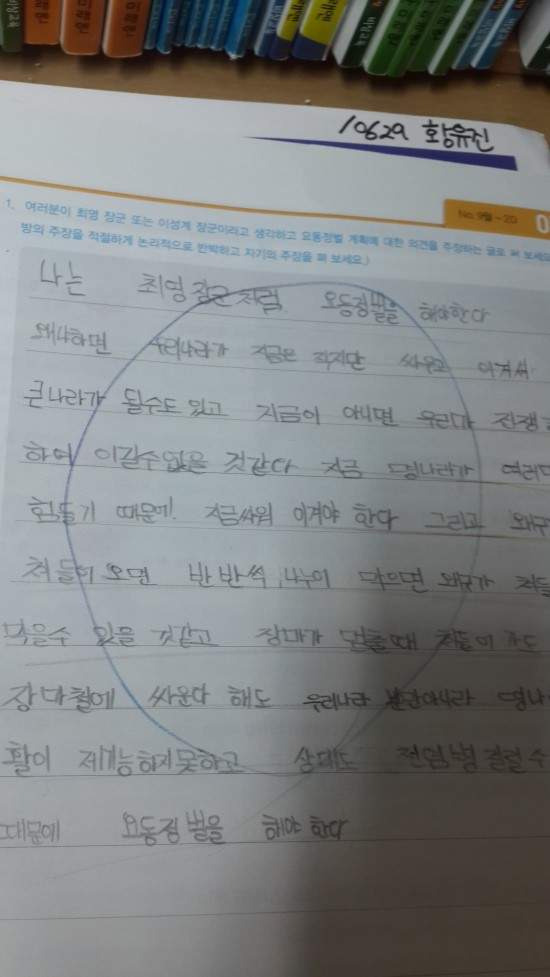 10629 황유진
No.9월-2D
1. 여러분이 최영 장군 또는 이성계 장군이라고 생각하고 요동정벌 계획에 대한 의견을 주장하는 글로 써 보세요
방의 주장을 적절하게 논리적으로 반박하고 자기의 주장을 펴 보세요.)
나는 최영 장군처럼 요동정벌을 해야한다
왜냐하면 우리나라가 지금은 작지만 싸워 이겨서
큰나라가 될수도 있고 지금이 아니면 우리가 전쟁
하여 이길수없을 것같다 지금 명나라가
힘들기 때문에 지금싸워 이겨야 한다 그리고 왜구
쳐들어 오면 반반씩 나누어 막으면 왜구가 쳐들
막을수 있을 것같고 장마가 멈출때 쳐들어가도
장마철에 싸운다 해도 우리나라 뿐만아니라 명나
활이 제기능하지못하고 상대도 전염병 걸릴수
때문에 요동정벌을 해야 한다